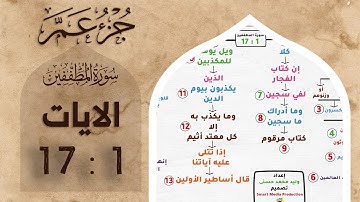 جزء عم
سورة المطففين
الايات
17 : 1
سورة المطففين
17 : 1
كلا
إن كتاب
الفجار
لفي سجين 7
وما أدراك
ما سجين 8
كتاب مرقوم
9
ويل يومئذ
للمكذبين
الذين
11 يكذبون بيوم
الدين
وما يكذب به
إلا
12 كل معتد أثيم
إذا تتلى
عليه آياتنا
13 قال أساطير الأولين
أو
وزنوهم
3
6
إعداد
وليد محمد حسني
تصميم
Smart Media Production